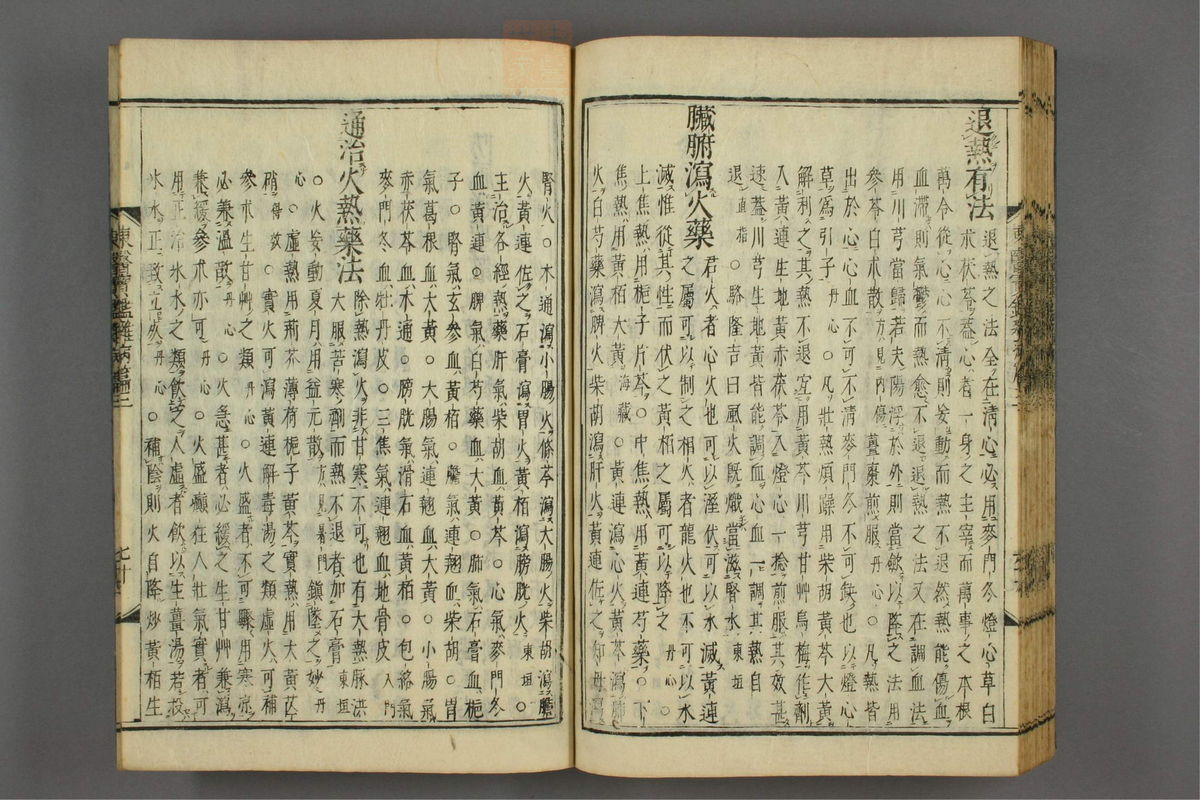 退熱有法
退熱之法全在清心必用麥門冬燈心草白
朮茯苓蓋心者一身之主宰而萬事之本根
萬令從心心不清則妄動而熱不退然熱能傷血
血滯則氣鬱而熱愈不退退熱之法又在調血法
用川芎當歸若夫陽浮於外則當歛以降之法用
參苓白朮散方見內傷薑棗煎服丹心○凡熱皆
出於心心血不可不清麥門冬不可缺也以燈心
草爲引子丹心○凡壯熱煩躁用柴胡黃芩大黃
解利之其熱不退宜用黃芩川芎甘艸烏梅作劑
入黃連生地黃赤茯苓入燈心一捻煎服其效甚
速蓋川芎生地黃皆能調血心血一調其熱自
退直指○駱隆吉曰風火旣熾當滋腎水東垣
臟腑瀉火藥
君火者心火也可以溼伏可以水滅黃連
之屬可以制之相火者龍火也不可以水
滅惟從其性而伏之黃栢之屬可以降之丹心○
上焦熱用梔子片芩○中焦熱用黃連芍藥○下
焦熱用黃栢大黃海藏○黃連瀉心火黃芩瀉肺
火白芍藥瀉脾火柴胡瀉肝火黃連佐之知母瀉
腎火○木通瀉小腸火條芩瀉大腸火柴胡瀉膽
火黃連佐之石膏瀉胃火黃栢瀉膀胱火東垣○
主治各經熱藥肝氣柴胡血黃芩○心氣麥門冬
血黃連○脾氣白芍藥血大黃○肺氣石膏血梔
子○腎氣玄參血黃栢○膽氣連翹血柴胡○胃
氣葛根血大黃○大腸氣連翹血大黃○小腸氣
赤茯苓血木通○膀胱氣滑石血黃栢○包絡氣
麥門冬血牡丹皮○三焦氣連翹血地骨皮入門
通治火熱藥法
除熱瀉火非甘寒不可也有大熱脉洪
大服苦寒劑而熱不退者加石膏東垣
○火妄動夏月用益元散方見暑門鎭墜之妙丹心
○虛熱用荊芥薄荷梔子黃芩實熱用大黃芒
稍得效○實火可瀉黃連解毒湯之類虛火可補
參朮生甘艸之類丹心○火盛者不可驟用寒凉
必兼溫散丹心○火急甚者必緩之生甘艸兼瀉
兼緩參朮亦可丹心○火盛癲在人壯氣實者可
用正治氷水之類飮之人虛者飮以生薑湯若投
氷水正致立死丹心○補陰則火自降炒黃栢生